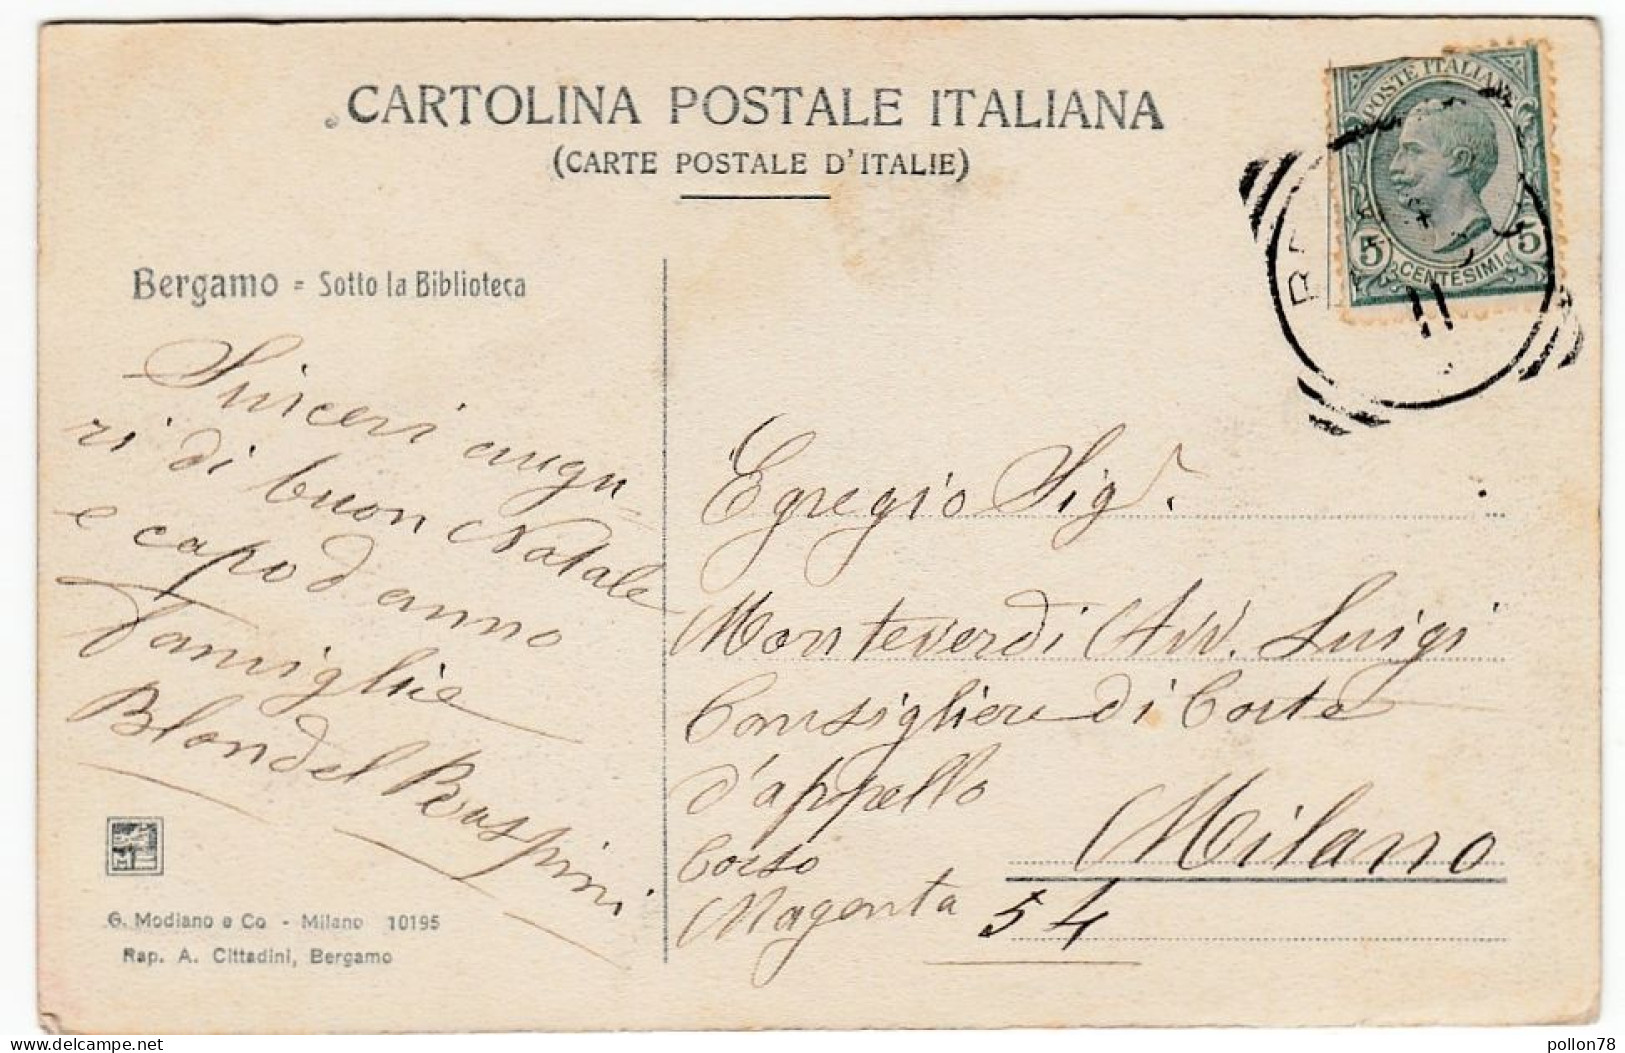 CARTOLINA POSTALE ITALIANA
(CARTE POSTALE D'ITALIE)
POSTE ITALIANE
5 CENTESIMI 5
11
Bergamo = Sotto la Biblioteca
Sinceri augu-
ri di buon Natale
e capo d'anno
Famiglie
Blondel
G. Modiano e Co - Milano 10195
Rap. A. Cittadini, Bergamo
Egregio Sigr.
Monteverdi Avv. Luigi
Consigliere di Corte
d'appello
Milano
Corso
Magenta 54
pollon78